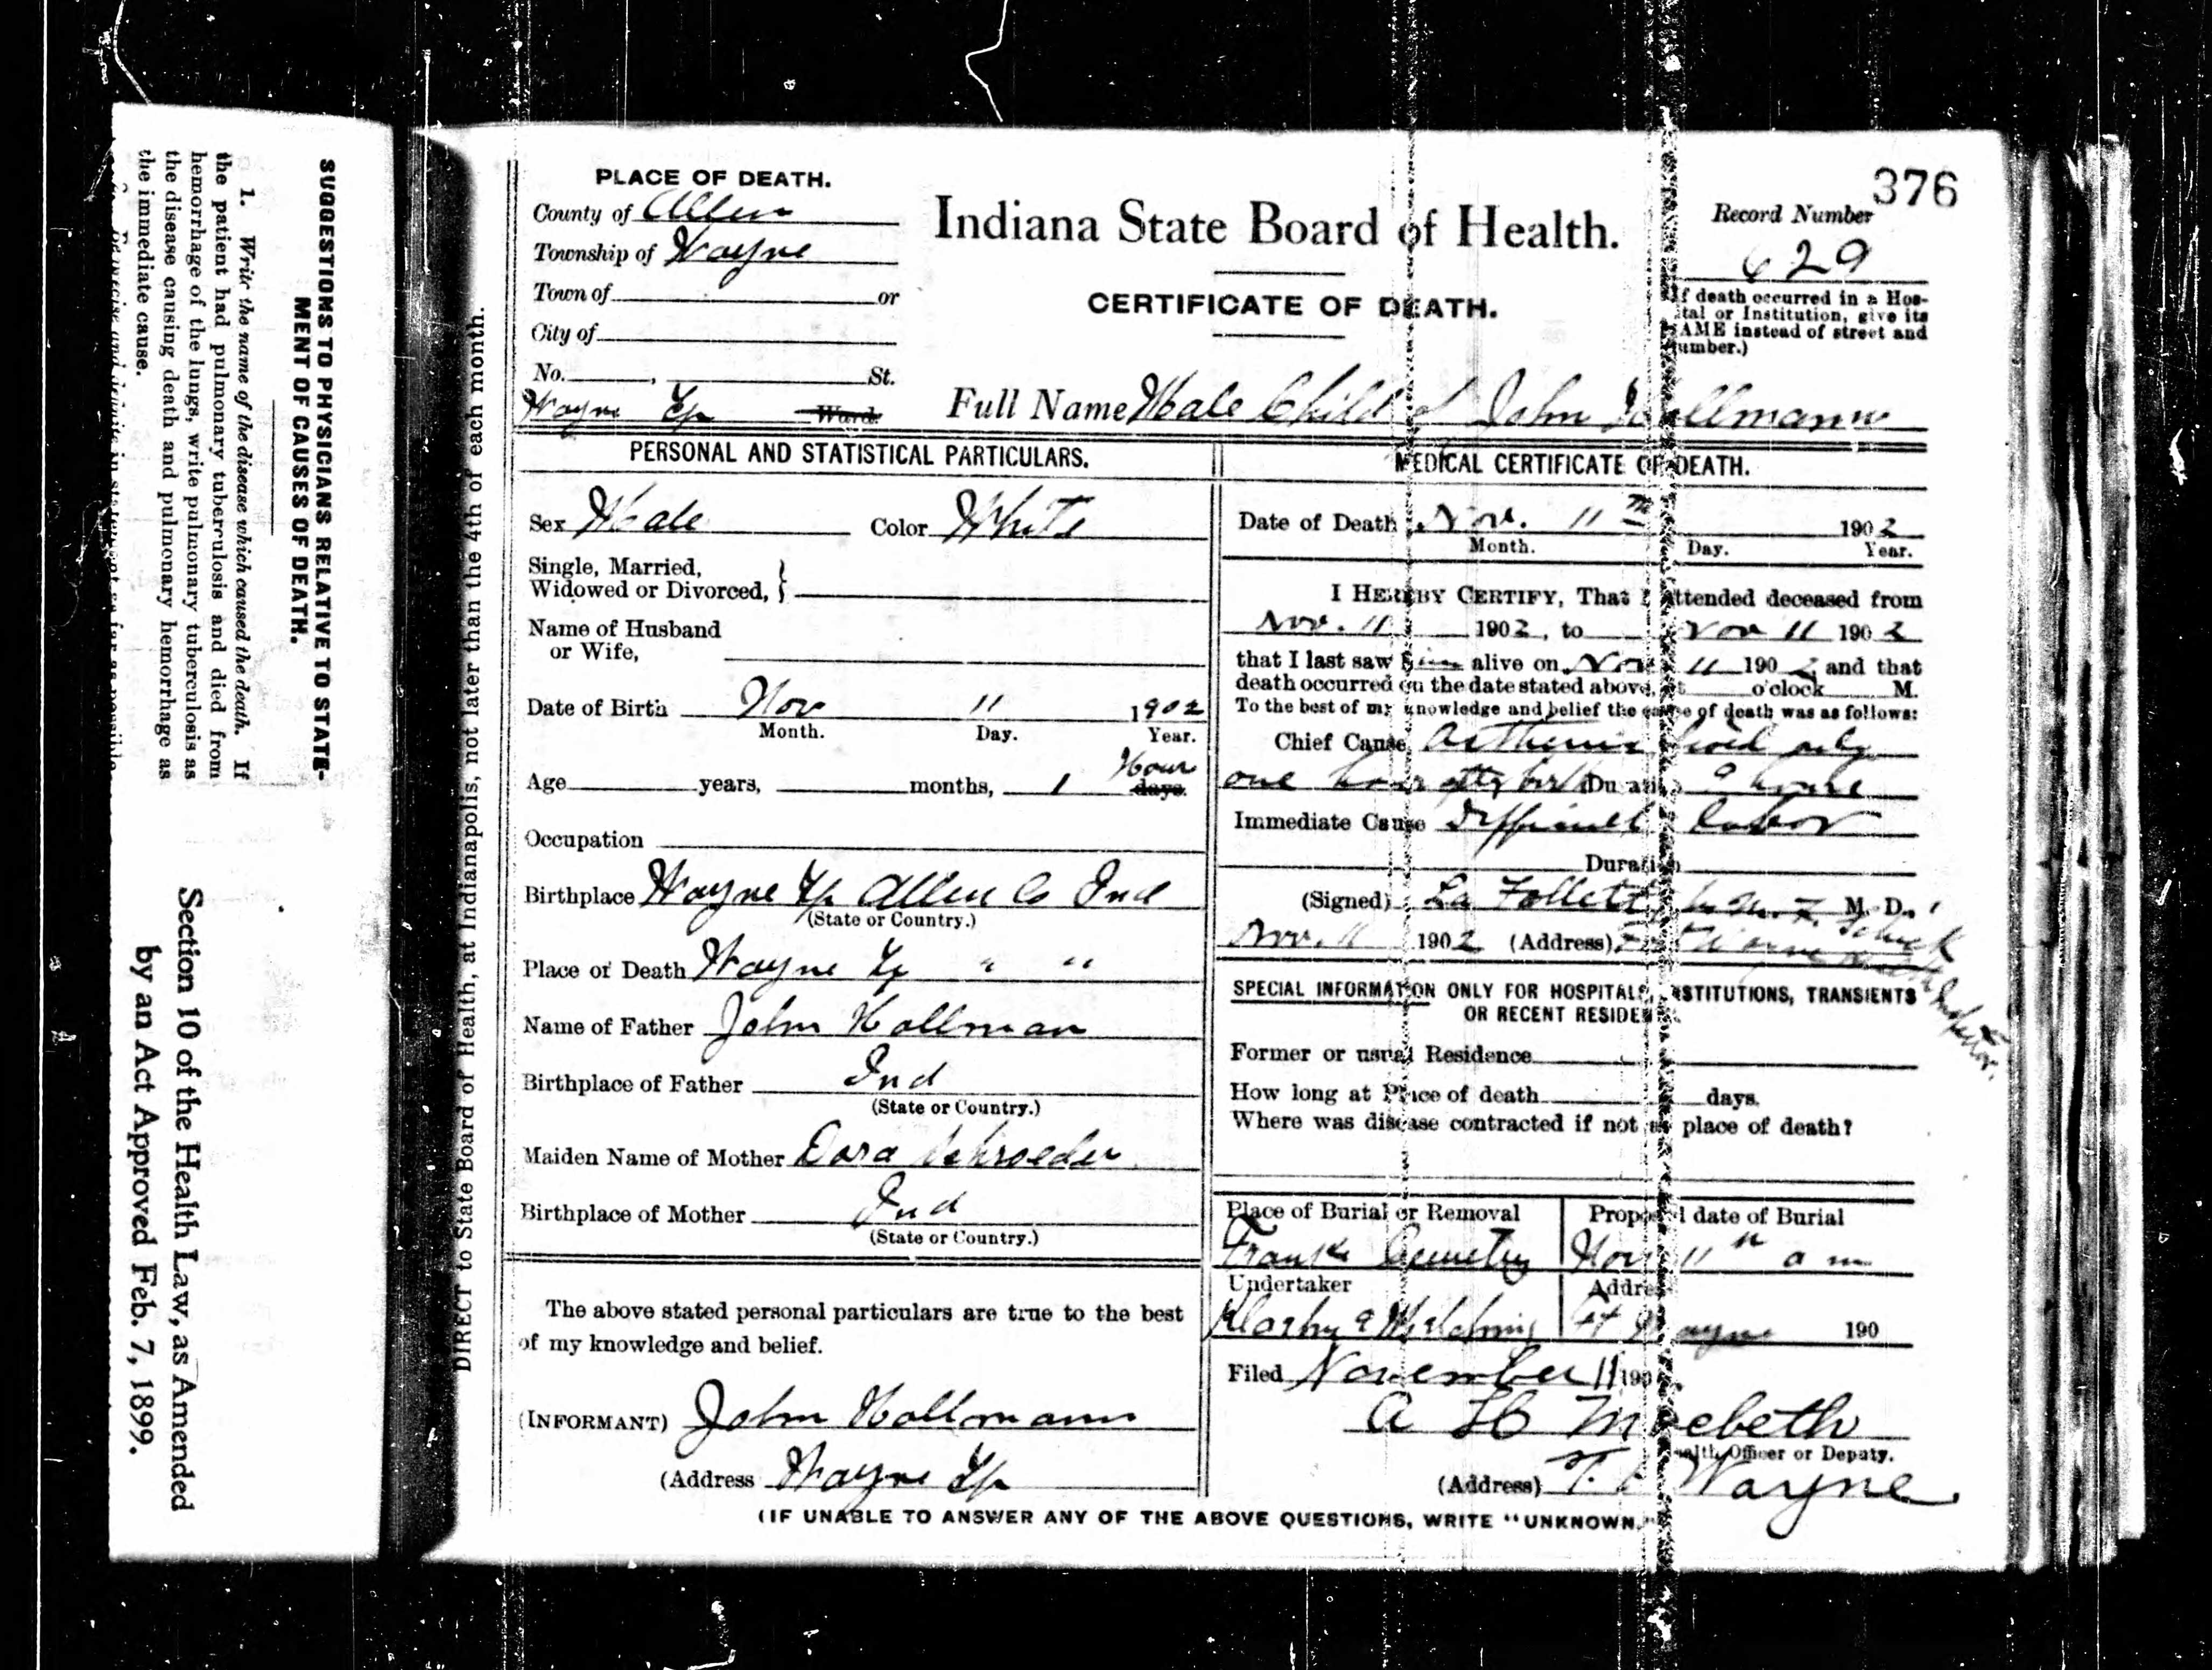 SUGGESTIONS TO PHYSICIANS RELATIVE TO STATE-
MENT OF CAUSES OF DEATH.
1. Write the name of the disease which caused the death. If
the patient had pulmonary tuberculosis and died from
hemorrhage of the lungs, write pulmonary tuberculosis as
the disease causing death and pulmonary hemorrhage as
the immediate cause.
Section 10 of the Health Law, as Amended
by an Act Approved Feb. 7, 1899.
DIRECT to State Board of Health, at Indianapolis, not later than the 4th of each month.
376
PLACE OF DEATH.
County of Allen
Township of Wayne
Town of or
City of
No. , St.
Wayne Tp Ward
Indiana State Board of Health.
CERTIFICATE OF DEATH.
Record Number
629
If death occurred in a Hos-
ital or Institution, give its
AME instead of street and
umber.)
Full Name Male Child of John Hollmann
PERSONAL AND STATISTICAL PARTICULARS.
Sex Male Color White
Single, Married,
Widowed or Divorced, }
Name of Husband
or Wife,
Date of Birth Nov 11 1902
Month. Day. Year.
Age years, months, 1 days Hour
Occupation
Birthplace Wayne Tp Allen Co Ind
(State or Country.)
Place of Death Wayne Tp " "
Name of Father John Hollman
Birthplace of Father Ind
(State or Country.)
Maiden Name of Mother Dora Schroeder
Birthplace of Mother Ind
(State or Country.)
The above stated personal particulars are true to the best
of my knowledge and belief.
(INFORMANT) John Hollmann
(Address Wayne Tp
MEDICAL CERTIFICATE OF DEATH.
Date of Death Nov. 11th 1902
Month. Day. Year.
I HEREBY CERTIFY, That I attended deceased from
Nov. 11 1902, to Nov 11 1902
that I last saw him alive on Nov 11 1902 and that
death occurred on the date stated above, at o'clock M.
To the best of my knowledge and belief the cause of death was as follows:
Chief Cause, Asthenia lived only
one hour after birth Duration
Immediate Cause Difficult labor
Duration
(Signed) La Follett M. D.
Nov. 11 1902 (Address) Ft Wayne
SPECIAL INFORMATION ONLY FOR HOSPITALS, INSTITUTIONS, TRANSIENTS
OR RECENT RESIDENTS.
Former or usual Residence
How long at Place of death days.
Where was disease contracted if not at place of death?
Place of Burial or Removal Proposed date of Burial
Cemetry Nov 11th a m
Undertaker Address
Ft Wayne 190
Filed November 11 190
A H Macbeth
ealth Officer or Deputy.
(Address) Ft Wayne
(IF UNABLE TO ANSWER ANY OF THE ABOVE QUESTIONS, WRITE "UNKNOWN."